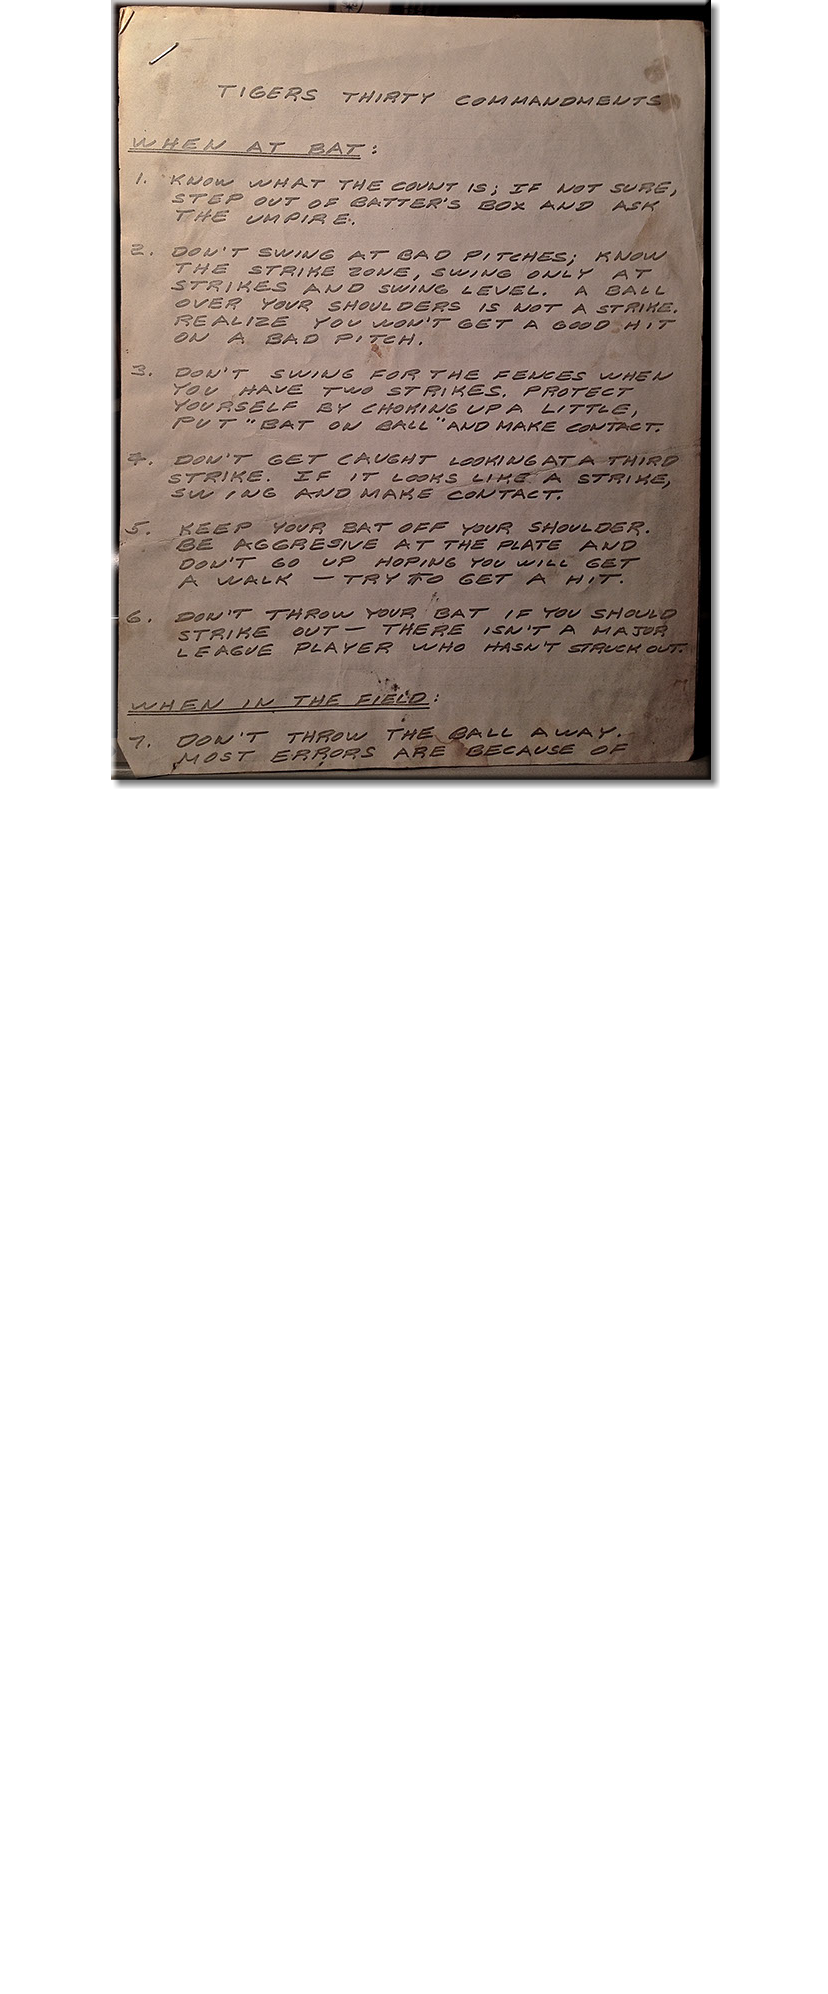 TIGERS THIRTY COMMANDMENTS
WHEN AT BAT:
1. KNOW WHAT THE COUNT IS; IF NOT SURE,
STEP OUT OF BATTER'S BOX AND ASK
THE UMPIRE.
2. DON'T SWING AT BAD PITCHES; KNOW
THE STRIKE ZONE, SWING ONLY AT
STRIKES AND SWING LEVEL. A BALL
OVER YOUR SHOULDERS IS NOT A STRIKE.
REALIZE YOU WON'T GET A GOOD HIT
ON A BAD PITCH.
3. DON'T SWING FOR THE FENCES WHEN
YOU HAVE TWO STRIKES. PROTECT
YOURSELF BY CHOKING UP A LITTLE,
PUT "BAT ON BALL" AND MAKE CONTACT.
4. DON'T GET CAUGHT LOOKING AT A THIRD
STRIKE. IF IT LOOKS LIKE A STRIKE,
SWING AND MAKE CONTACT.
5. KEEP YOUR BAT OFF YOUR SHOULDER.
BE AGGRESIVE AT THE PLATE AND
DON'T GO UP HOPING YOU WILL GET
A WALK — TRY TO GET A HIT.
6. DON'T THROW YOUR BAT IF YOU SHOULD
STRIKE OUT — THERE ISN'T A MAJOR
LEAGUE PLAYER WHO HASN'T STRUCK OUT.
WHEN IN THE FIELD:
7. DON'T THROW THE BALL AWAY.
MOST ERRORS ARE BECAUSE OF